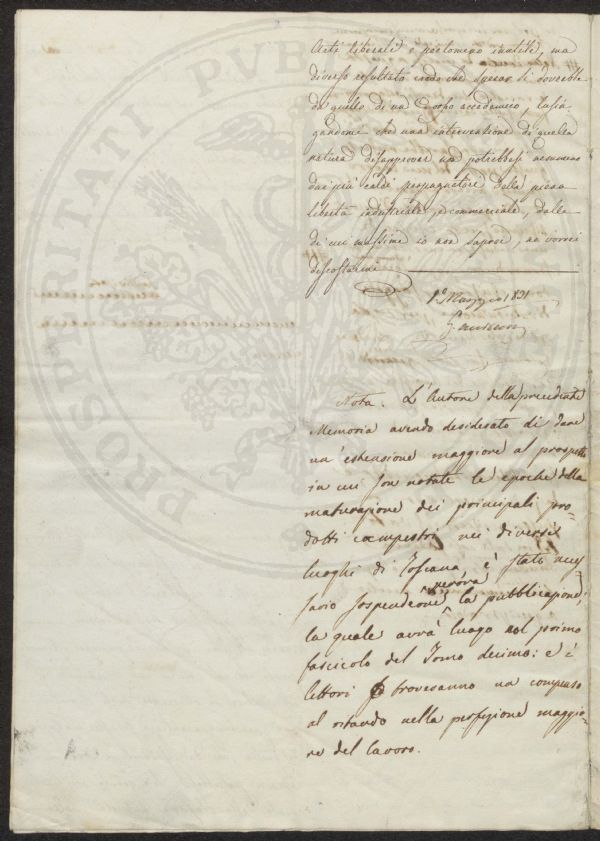 PROSPERITATI PUBLI
Arti liberale è poctomeno inutile, ma
diverso resultato credo che sperar si dovrebbe
da quello di un Corpo accademico, lusin-
gandomi che una intervenzione di quella
natura disapprovar non potrebbesi nemmeno
dai più caldi propagatori della piena
libertà industriale, e commerciale, dalle
di cui massime io non saprei, ne vorrei
discostarmi
1° Maggio 1831
Nota. L'Autore della precedente
Memoria avendo desiderato di dare
un' estensione maggiore al prospetto
in cui son notate le epoche della
maturazione dei principali pro-
dotti campestri nei diversi
luoghi di Toscana, è stato neces
sario sospenderne la pubblicazione;
la quale avrà luogo nel primo
fascicolo del Tomo decimo: e i
lettori troveranno un compenso
al ritardo nella perfezione maggio-
re del lavoro.